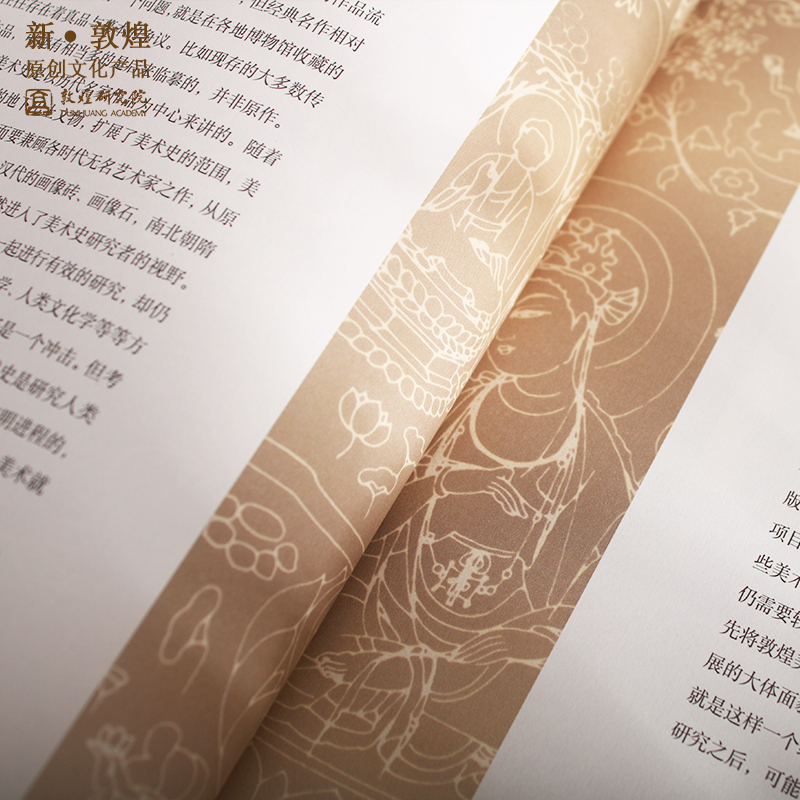 新·敦煌
原创文化产品
敦煌研究院
DUNHUANG ACADEMY
作品流
但经典名作相对
个问题,就是在各地博物馆收藏的
往往存在着真品与
议。比如现存的大多数传
临摹的,并非原作。
中心来讲的。随着
文物,扩展了美术史的范围,美
而要兼顾各时代无名艺术家之作,从原
汉代的画像砖、画像石,南北朝隋
然进入了美术史研究者的视野。
一起进行有效的研究,却仍
学、人类文化学等等方
是一个冲击。但考
史是研究人类
明进程的,
美术就
版
项目
些美术
仍需要
先将敦煌美
展的大体面
就是这样一个
研究之后,可能